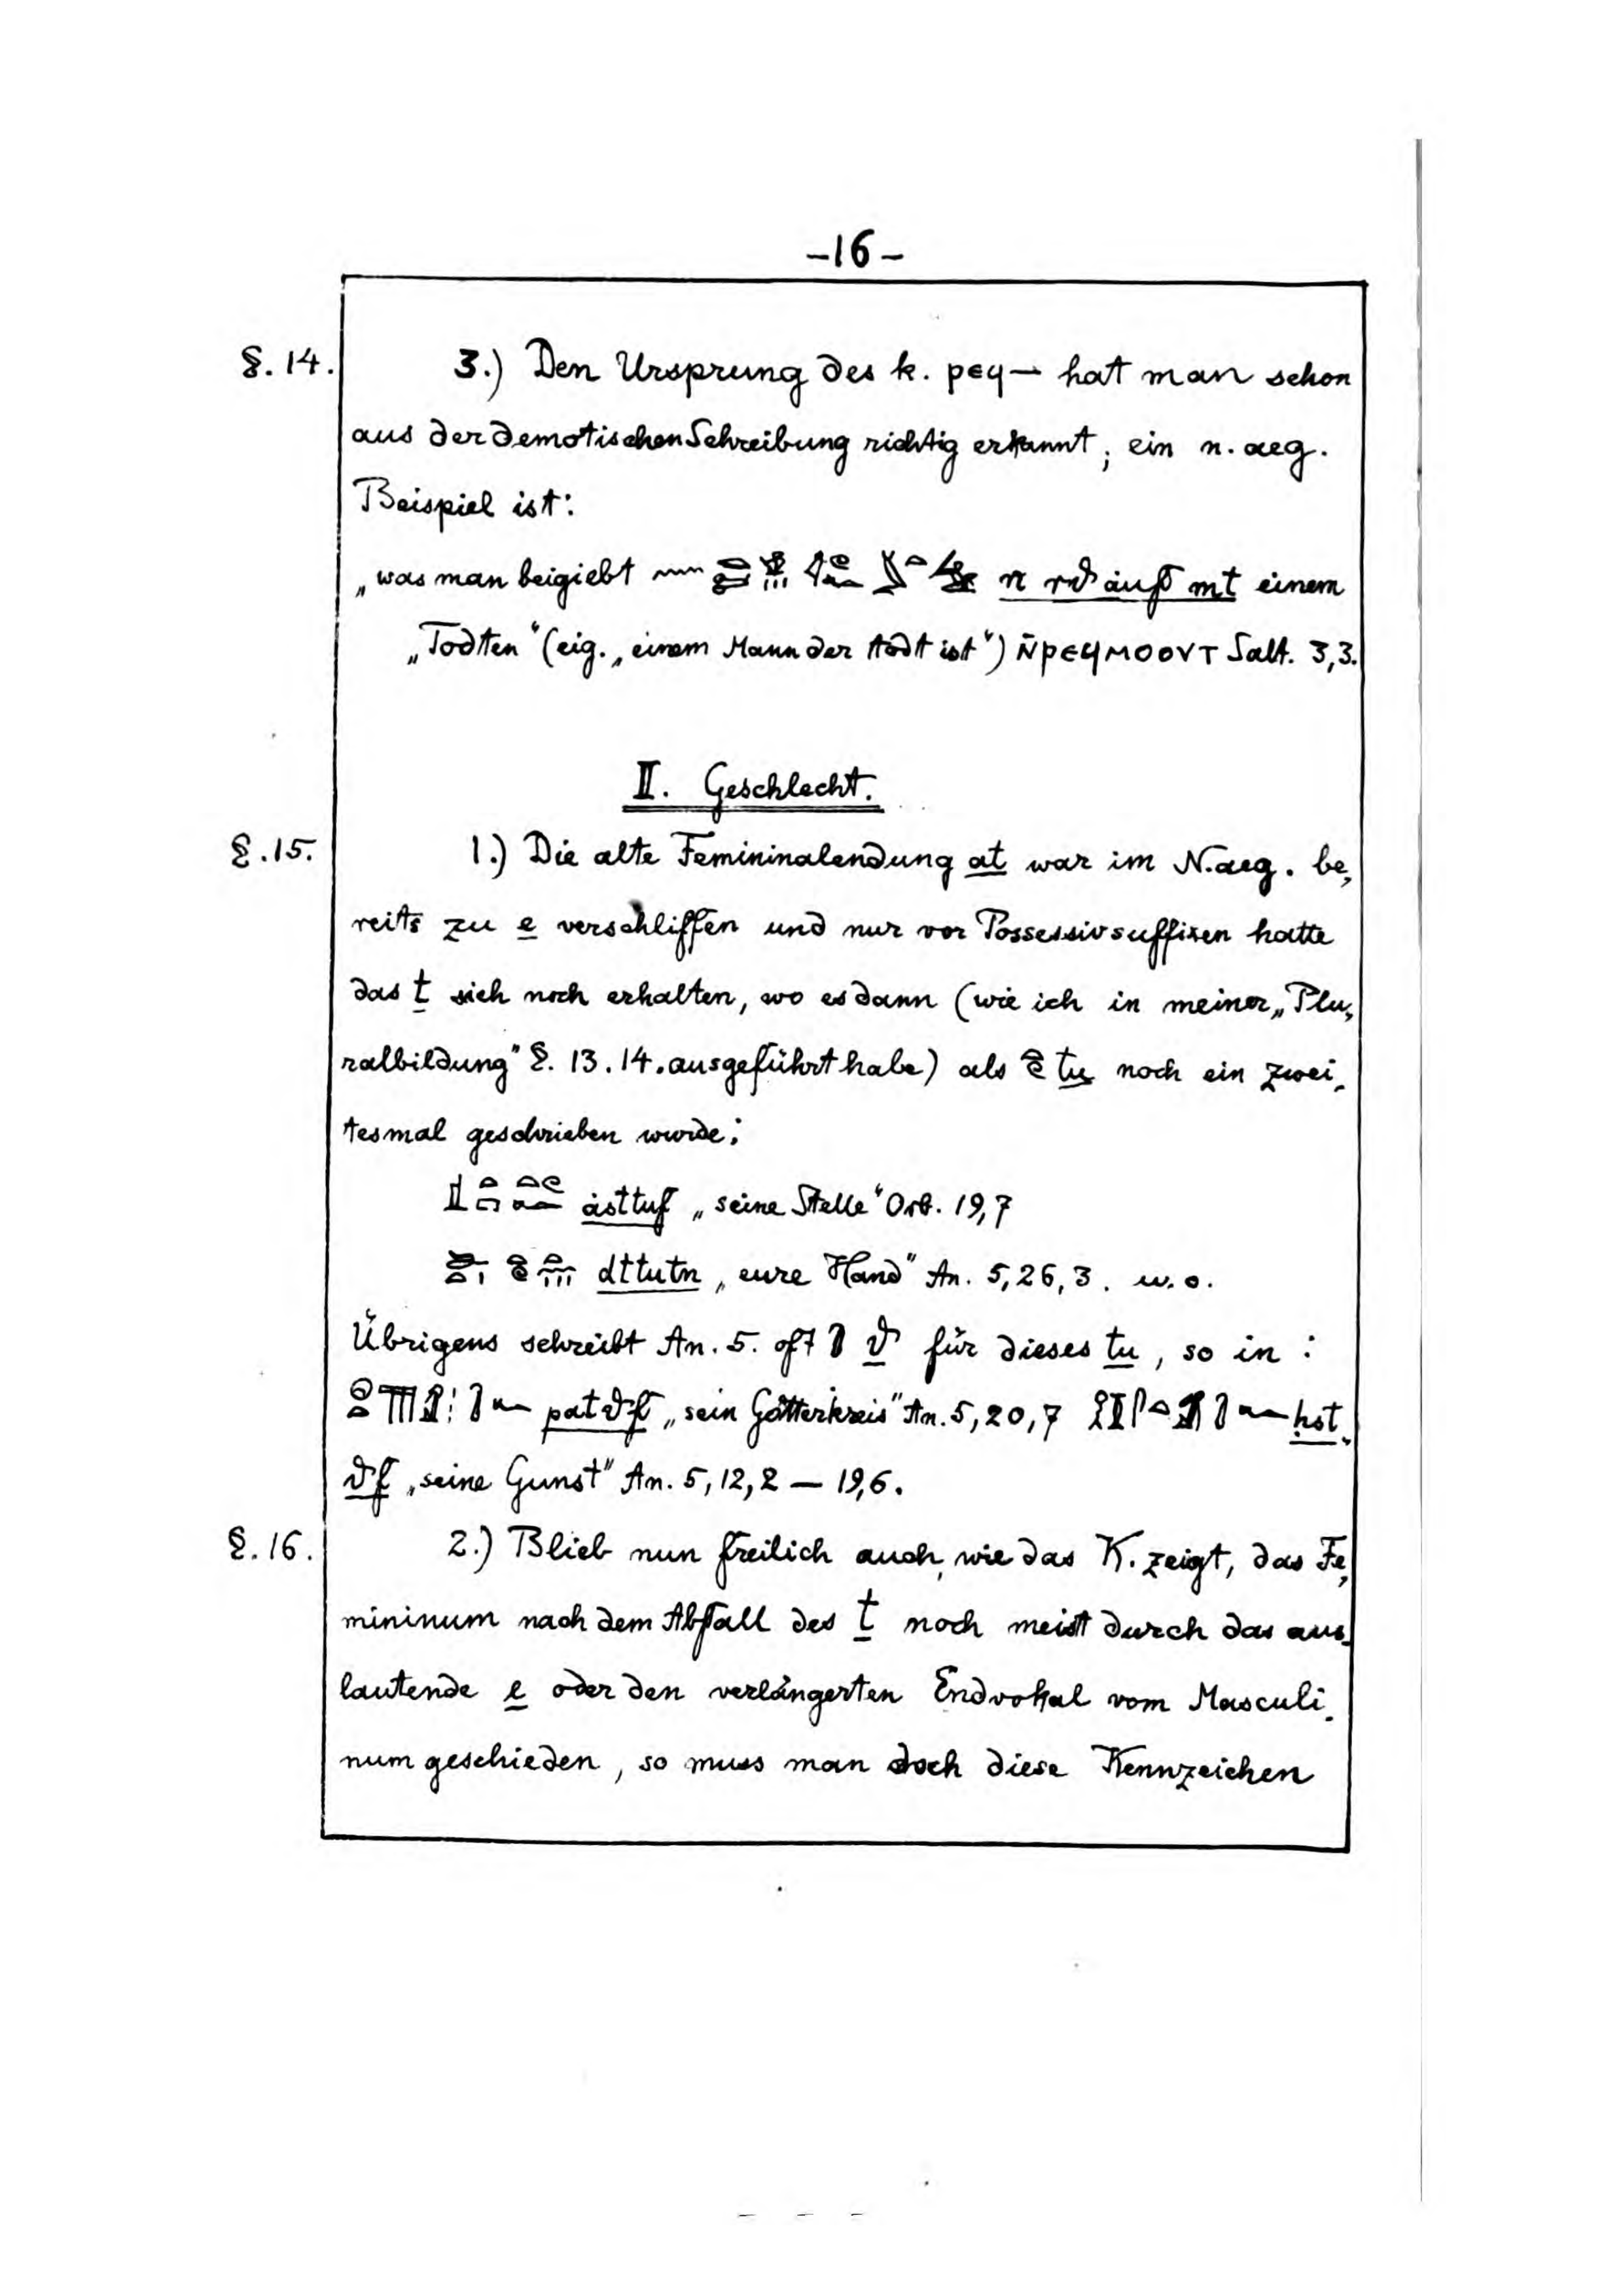 -16-
§.14. 3.) Den Ursprung des k. ⲣⲉϥ— hat man schon
aus der demotischen Schreibung richtig erkannt; ein n. aeg.
Beispiel ist:
„was man beigiebt n rϑ äuf mt einem
„Todten“ (eig. „einem Mann der todt ist“) ⲛ̄ⲣⲉϥⲙⲟⲟⲩⲧ Salt. 3,3.
II. Geschlecht.
§.15. 1.) Die alte Femininalendung at war im N.aeg. be„
reits zu e verschliffen und nur vor Possessivsuffixen hatte
das t sich noch erhalten, wo es dann (wie ich in meiner „Plu„
ralbildung“ §. 13.14. ausgeführt habe) als tu noch ein zwei„
tesmal geschrieben wurde:
ȧsttuf „seine Stelle“ Orb. 19,7
dttutn „eure Hand“ An. 5,26,3. u. o.
Übrigens schreibt An. 5. oft ϑ für dieses tu, so in:
patϑf „sein Götterkreis“ An. 5,20,7 ḥst„
ϑf „seine Gunst“ An. 5,12,2 — 19,6.
§.16. 2.) Blieb nun freilich auch, wie das K. zeigt, das Fe„
mininum nach dem Abfall des t noch meist durch das aus„
lautende e oder den verlängerten Endvokal vom Masculi„
num geschieden, so muss man doch diese Kennzeichen